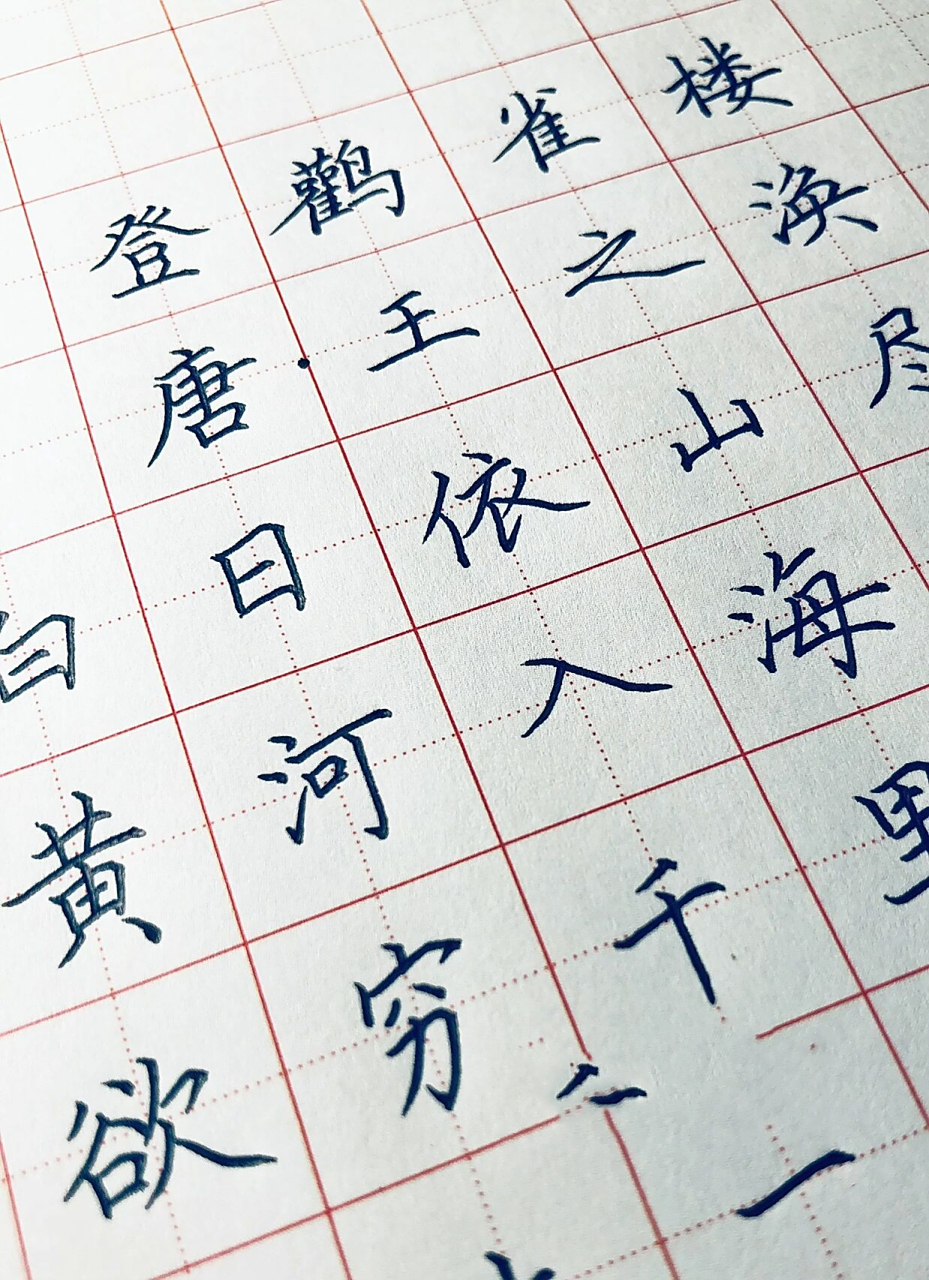 登鹳雀楼
唐·王之涣
白日依山尽
黄河入海
欲穷千里
一